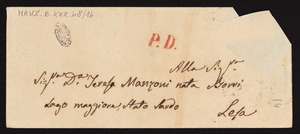 MANZ. B. XXX. 48/16
P. D.
Alla Sig.ra
Sig.ra D.a Teresa Manzoni nata Borri
Lago maggiore Stato Sardo
Lesa